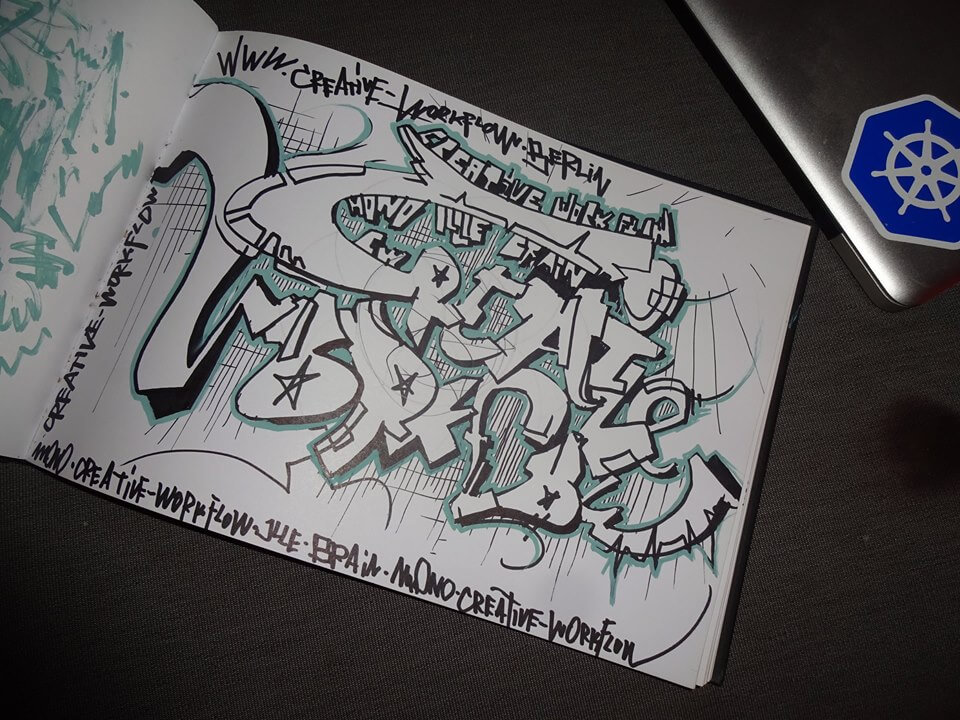 WWW.CREATIVE-WORKFLOW.BERLIN
CREATIVE WORKFLOW
MONO THE BRAIN
CREATE
CREATIVE-WORKFLOW
MONO.CREATIVE-WORKFLOW.THE.BRAIN.MONO.CREATIVE-WORKFLOW